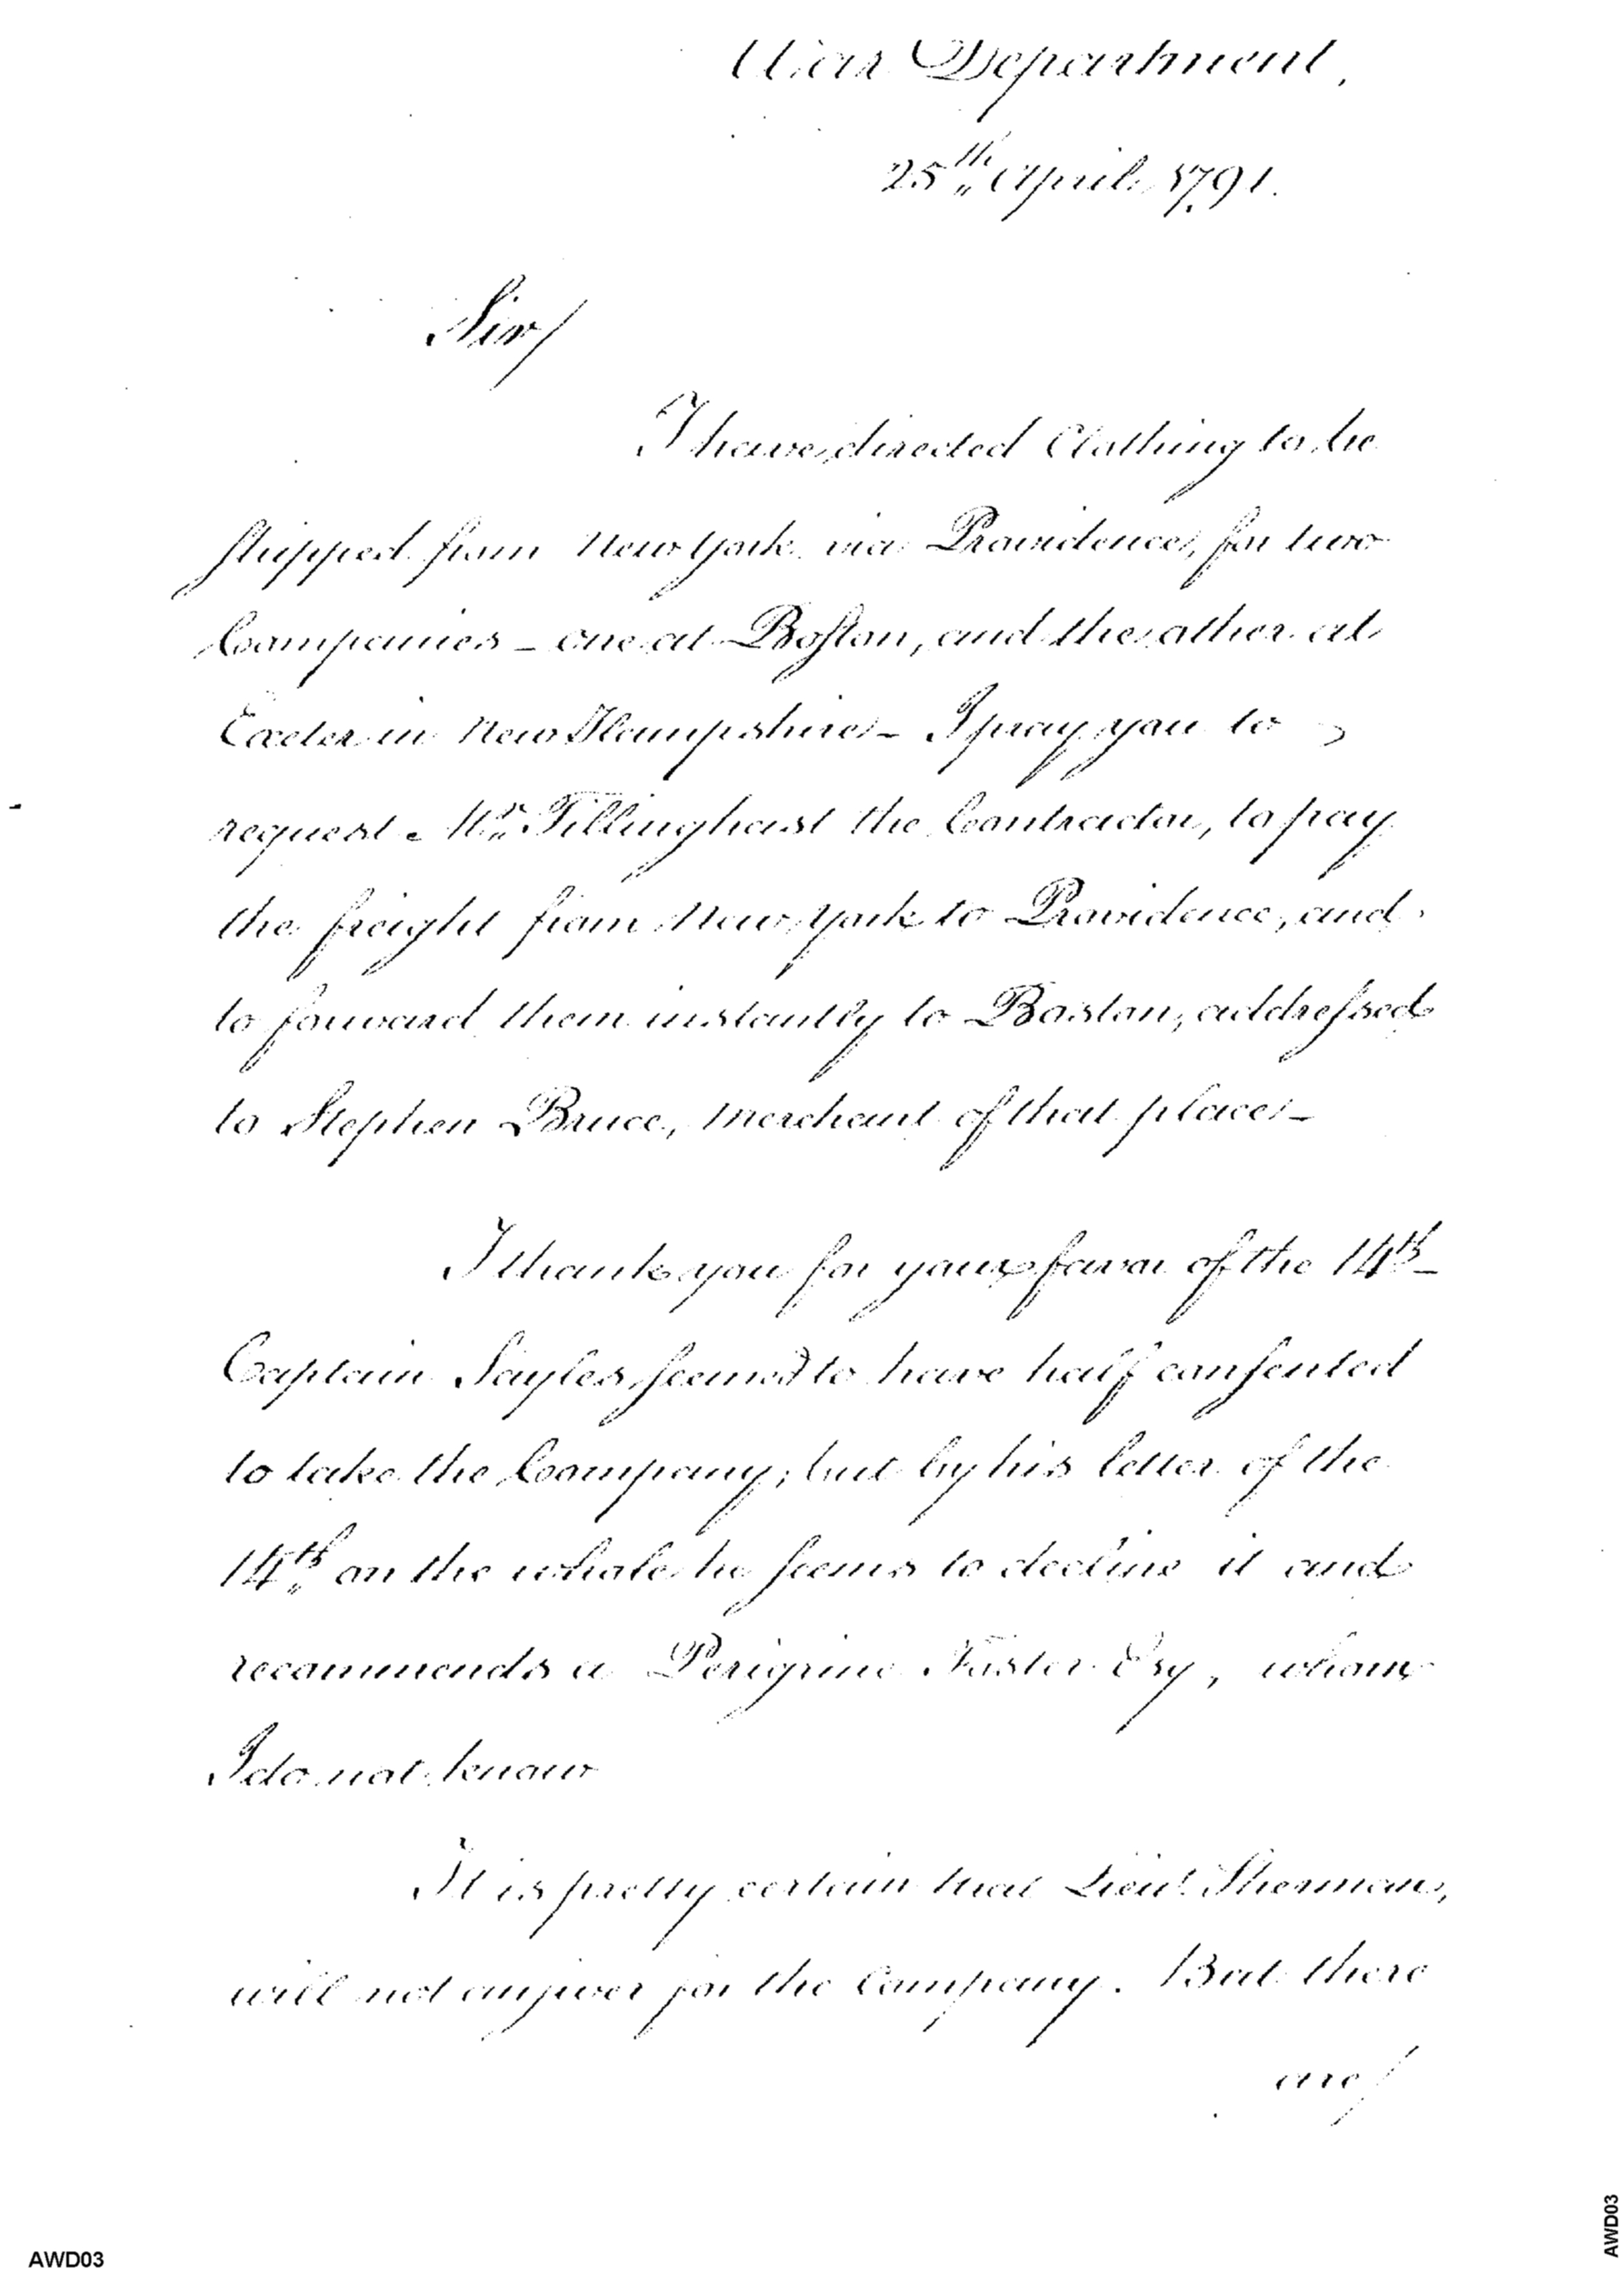 War Department,
25th April 1791.
Sir/
I have directed Clothing to be
shipped from New York via Providence, for two
Companies - one at Boston, and the other at
Exeter in New Hampshire - I pray you to
request Mr. Tillinghast the Contractor, to pay
the freight from New York to Providence, and
to forward them instantly to Boston, addressed
to Stephen Bruce, Merchant of that place -
I thank you for your favor of the 14th -
Captain Sayles seemed to have half consented
to take the Company; but by his letter of the
14th on the whole he seems to decline it and
recommends a Perigrine Foster Esq, whom
I do not know
It is pretty certain that Lieut. Sherman,
will not answer for the Company. But there
are/
AWD03
AWD03